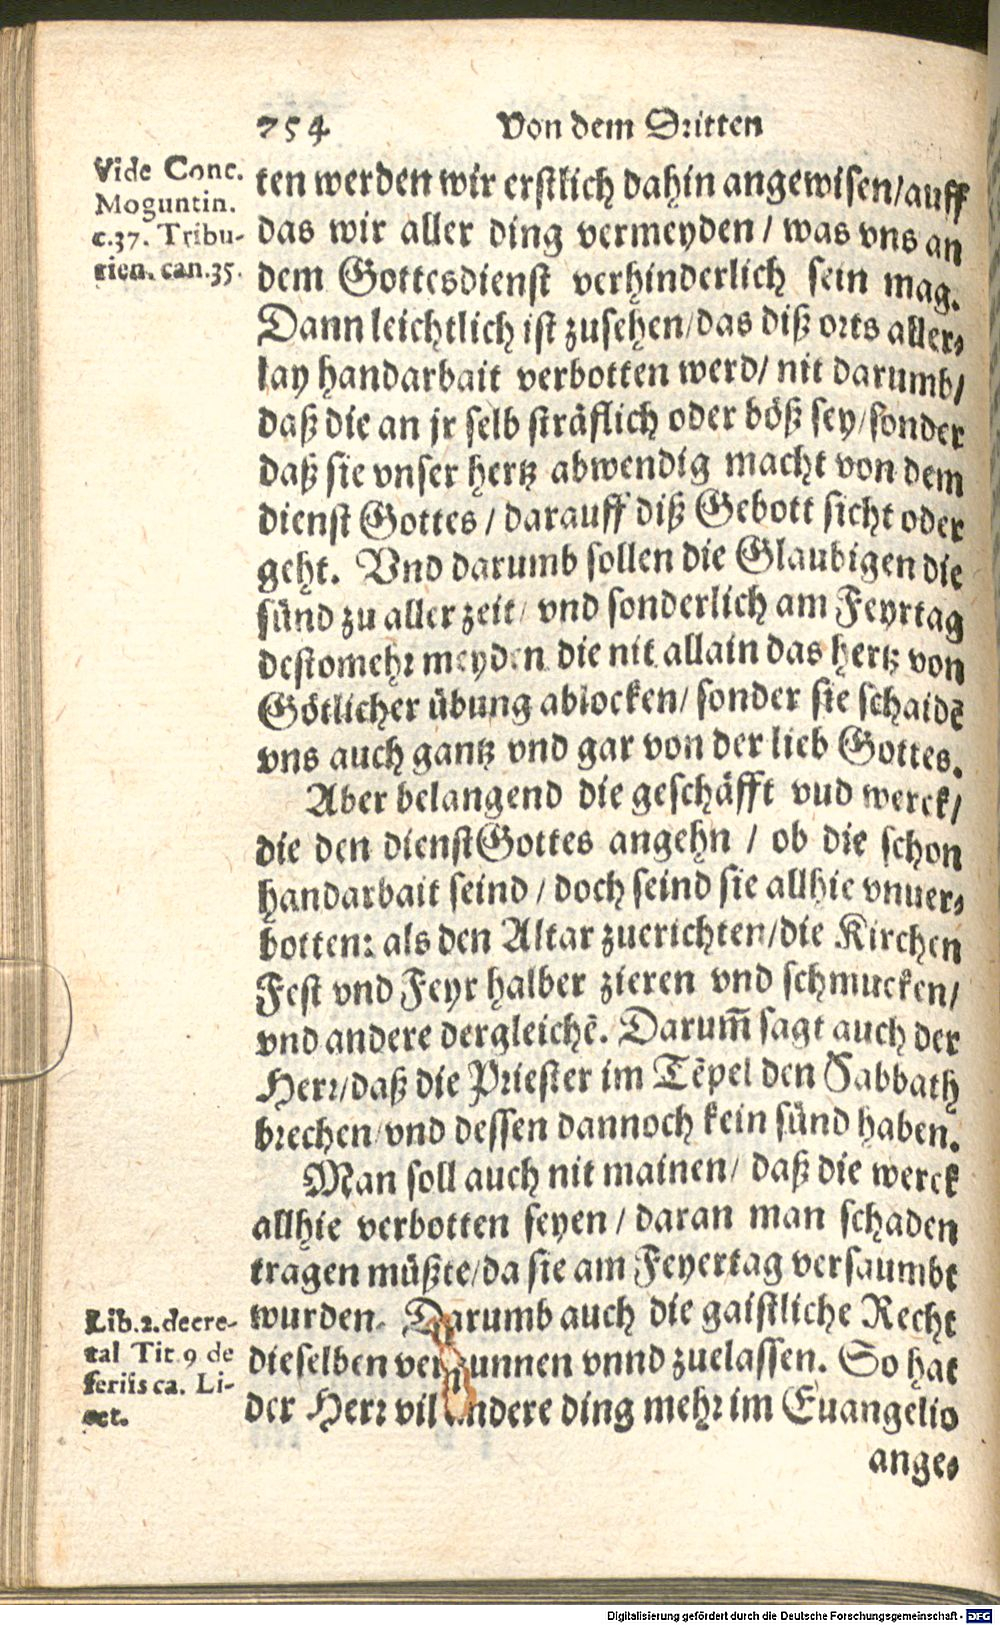 754 Von dem Dritten
Vide Conc.
Moguntin.
c.37. Tribu-
rien. can.35.
ten werden wir erstlich dahin angewisen/auff
das wir aller ding vermeyden / was vns an
dem Gottesdienst verhinderlich sein mag.
Dann leichtlich ist zusehen/das diß orts aller-
lay handarbait verbotten werd/ nit darumb/
daß die an jr selb sträflich oder böß sey/sonder
daß sie vnser hertz abwendig macht von dem
dienst Gottes / darauff diß Gebott sicht oder
geht. Vnd darumb sollen die Glaubigen die
sünd zu aller zeit/ vnd sonderlich am Feyrtag
destomehr meyden die nit allain das hertz von
Götlicher übung ablocken/ sonder sie schaidē
vns auch gantz vnd gar von der lieb Gottes.
Aber belangend die geschäfft vud werck/
die den dienstGottes angehn / ob die schon
handarbait seind / doch seind sie allhie vnuer-
botten: als den Altar zuerichten/die Kirchen
Fest vnd Feyr halber zieren vnd schmucken/
vnd andere dergleichē. Darum̄ sagt auch der
Herr/daß die Priester im Tēpel den Sabbath
brechen/vnd dessen dannoch kein sünd haben.
Man soll auch nit mainen/ daß die werck
allhie verbotten seyen / daran man schaden
tragen müßte/da sie am Feyertag versaumbt
wurden. Darumb auch die gaistliche Recht
dieselben vergunnen vnnd zuelassen. So hat
der Herr vil andere ding mehr im Euangelio
ange-
Lib.2.decre-
tal Tit 9 de
feriis ca. Li-
cet.
Digitalisierung gefördert durch die Deutsche Forschungsgemeinschaft - DFG